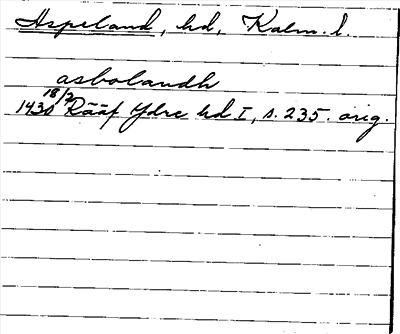 Aspeland, hd, Kalm. l.
asbolandh
1430 18/7 Rääf Ydre hd I, s. 235. orig.